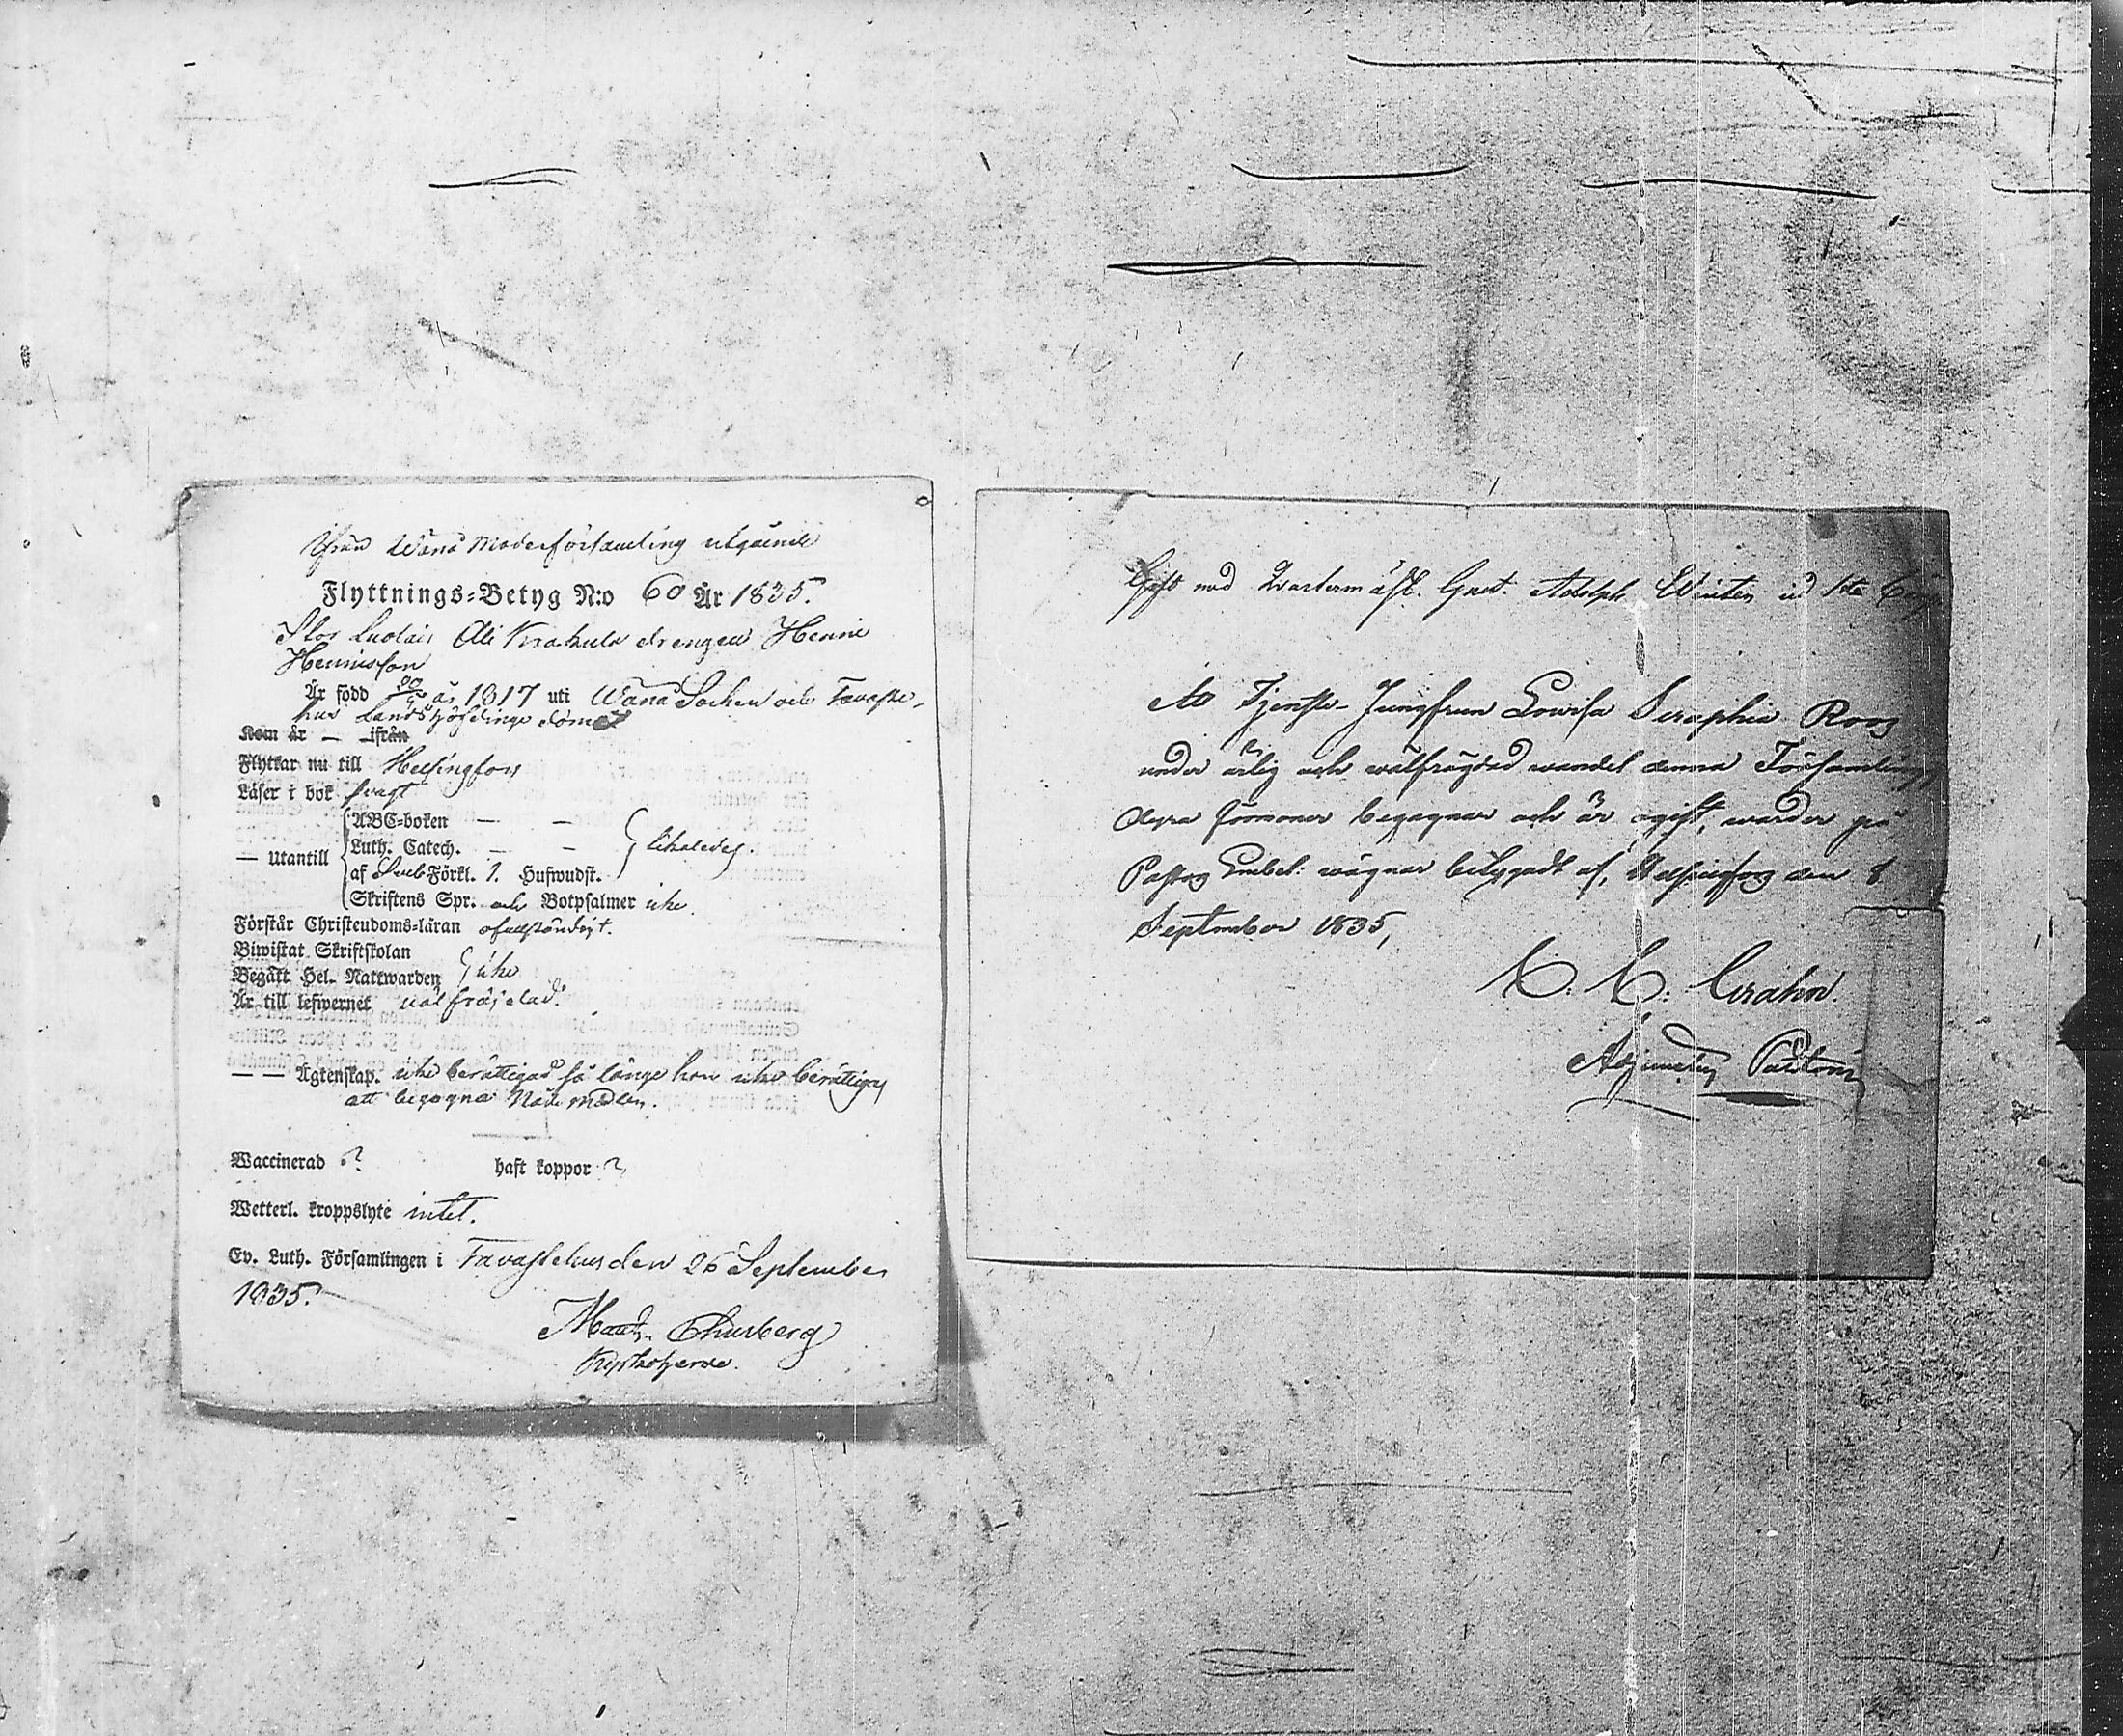 Ifrån Wånå Moderförsamling utgående
Flyttnings-Betyg N:o 60 År 1835.
Stor Luolais Ali Krakula drengen Henric
Henricsson
Är född 20 år 1817 uti Wånå Sochen och Tavaste-
hus Landshöfdinge döme
Kom år — ifrån
Flyttar nu till Helsingfors
Läser i bok svagt
ABC-boken — —
— utantill Luth. Catech. — — likaledes.
af Sveb Förkl. 1. Hufwudst.
Skriftens Spr. och Botpsalmer icke.
Förstår Christendoms-läran ofullständigt.
Biwistat Skriftskolan
Begått Hel. Nattwarden icke
Är till lefwernet välfrejdad.
— — Ägtenskap. icke berättigad så länge han icke berättigas
att begagna Nådemedlen.
Waccinerad ? haft koppor ?
Wetterl. kroppslyte intet.
Ev. Luth. Församlingen i Tavastehus den 26 September
1835.
Churberg
Kyrkoherde.
Gift med Qvartermäst. Gust. Adolph Winter vid 1sta
Att Tjenste-Jungfrun Lovisa Seraphia Roos
under ärlig och wälfrägdad wandel denna Församlings
dyra förmoner begagnar och är ogift, warder på
Pastors Embet: wägnar betygadt af, Helsingfors den 8
September 1835,
Crahn.
Pastor